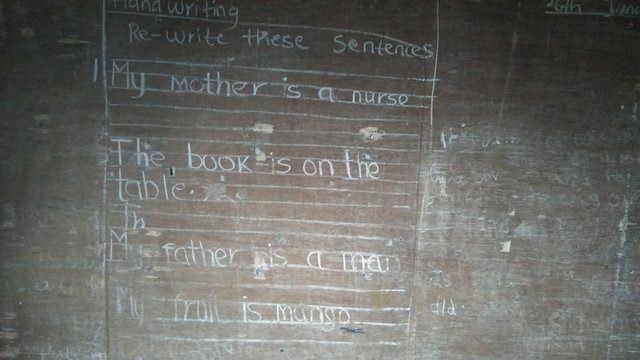 Hand Writing
26th June
Re-write these Sentences
1 My mother is a nurse
The book is on the
table.
Th
My Father is a man
My fruit is mango